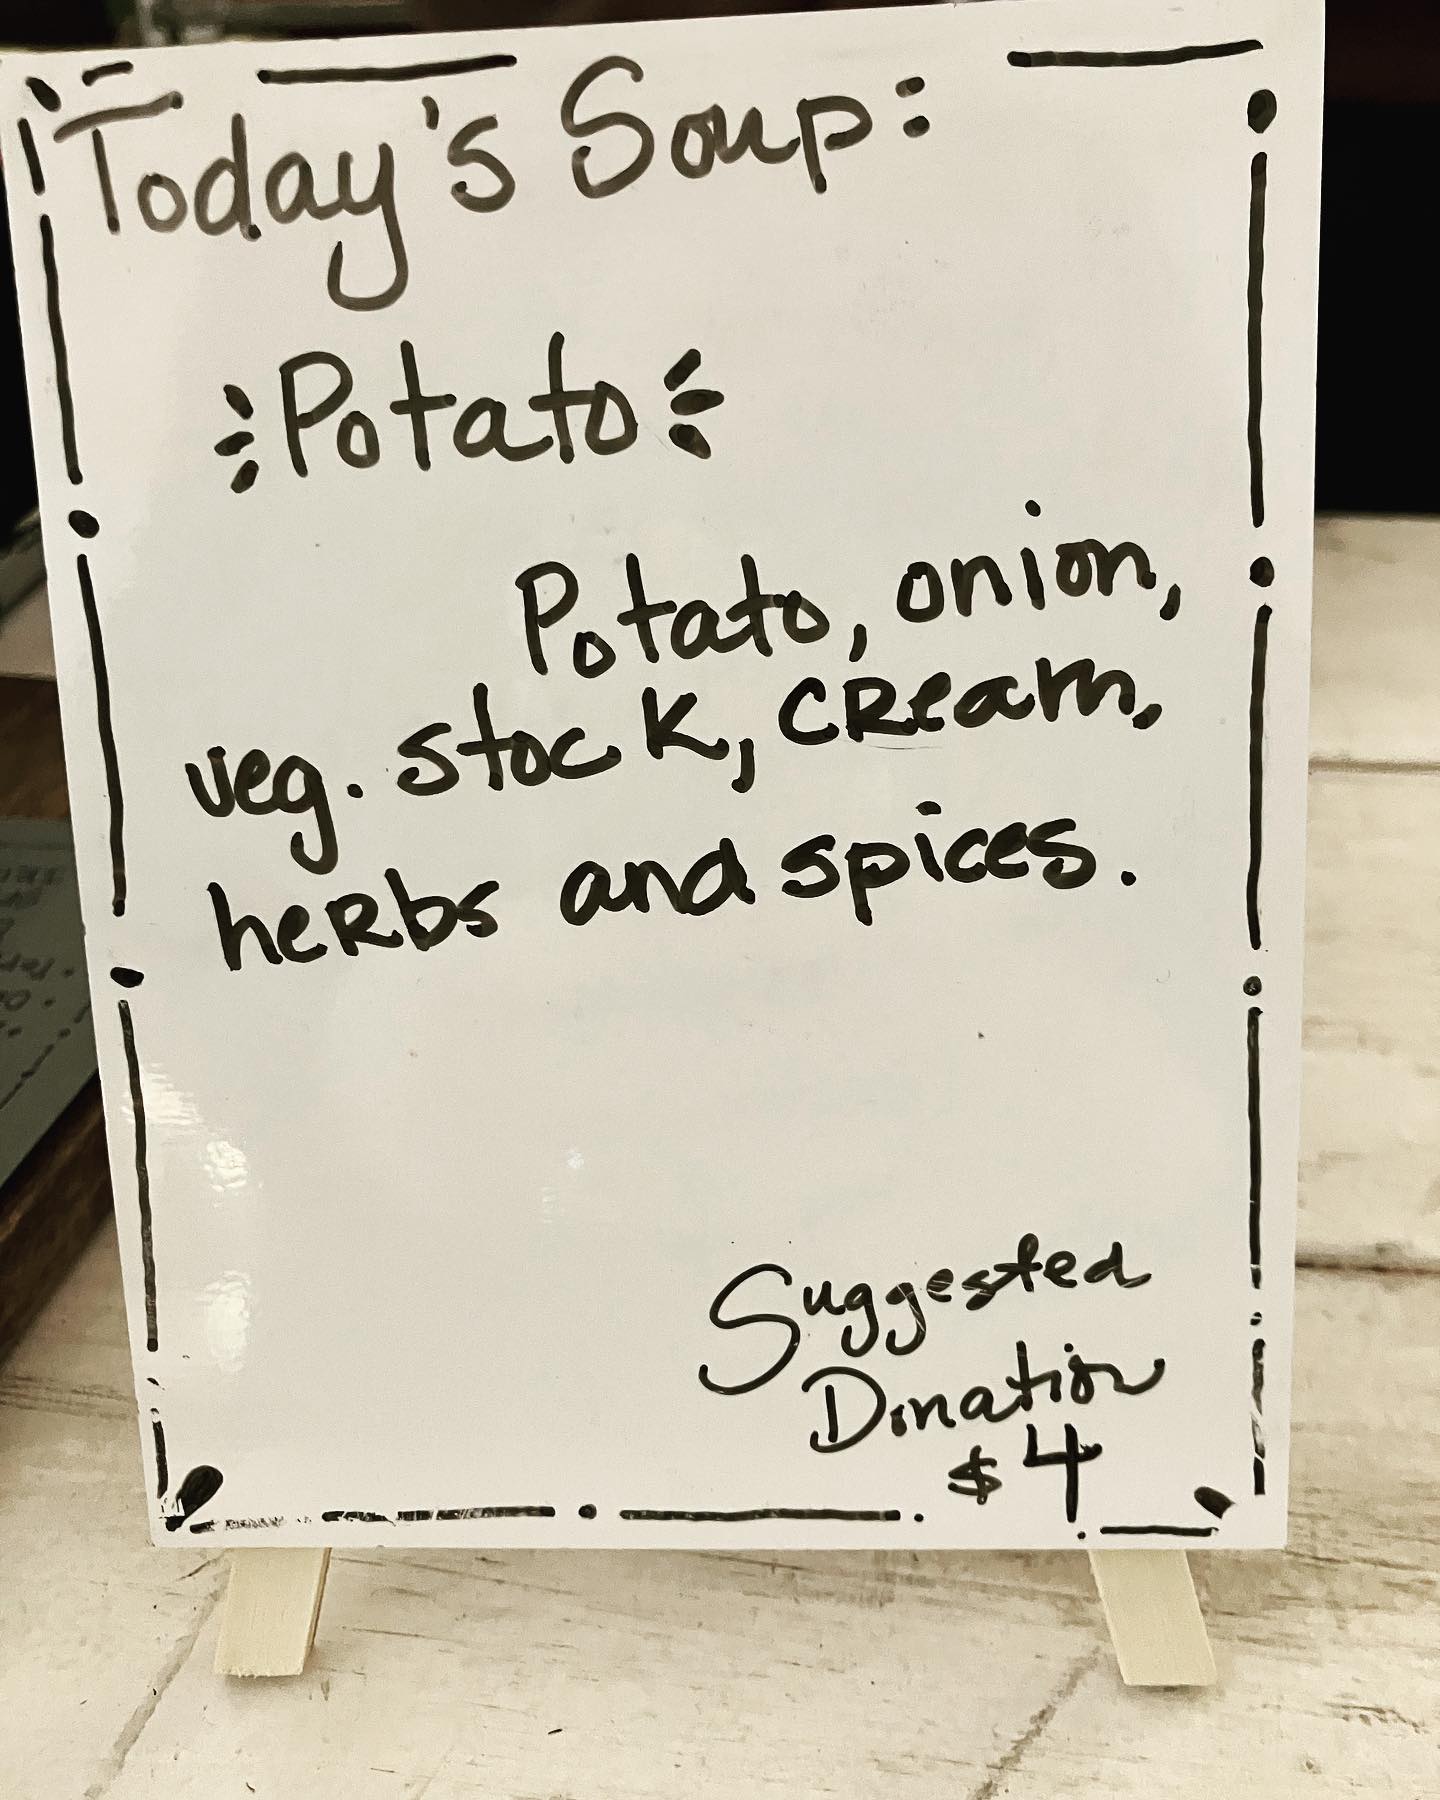 Today's Soup:
Potato
Potato, onion,
veg. stock, cream,
herbs and spices.
Suggested
Donation
$4